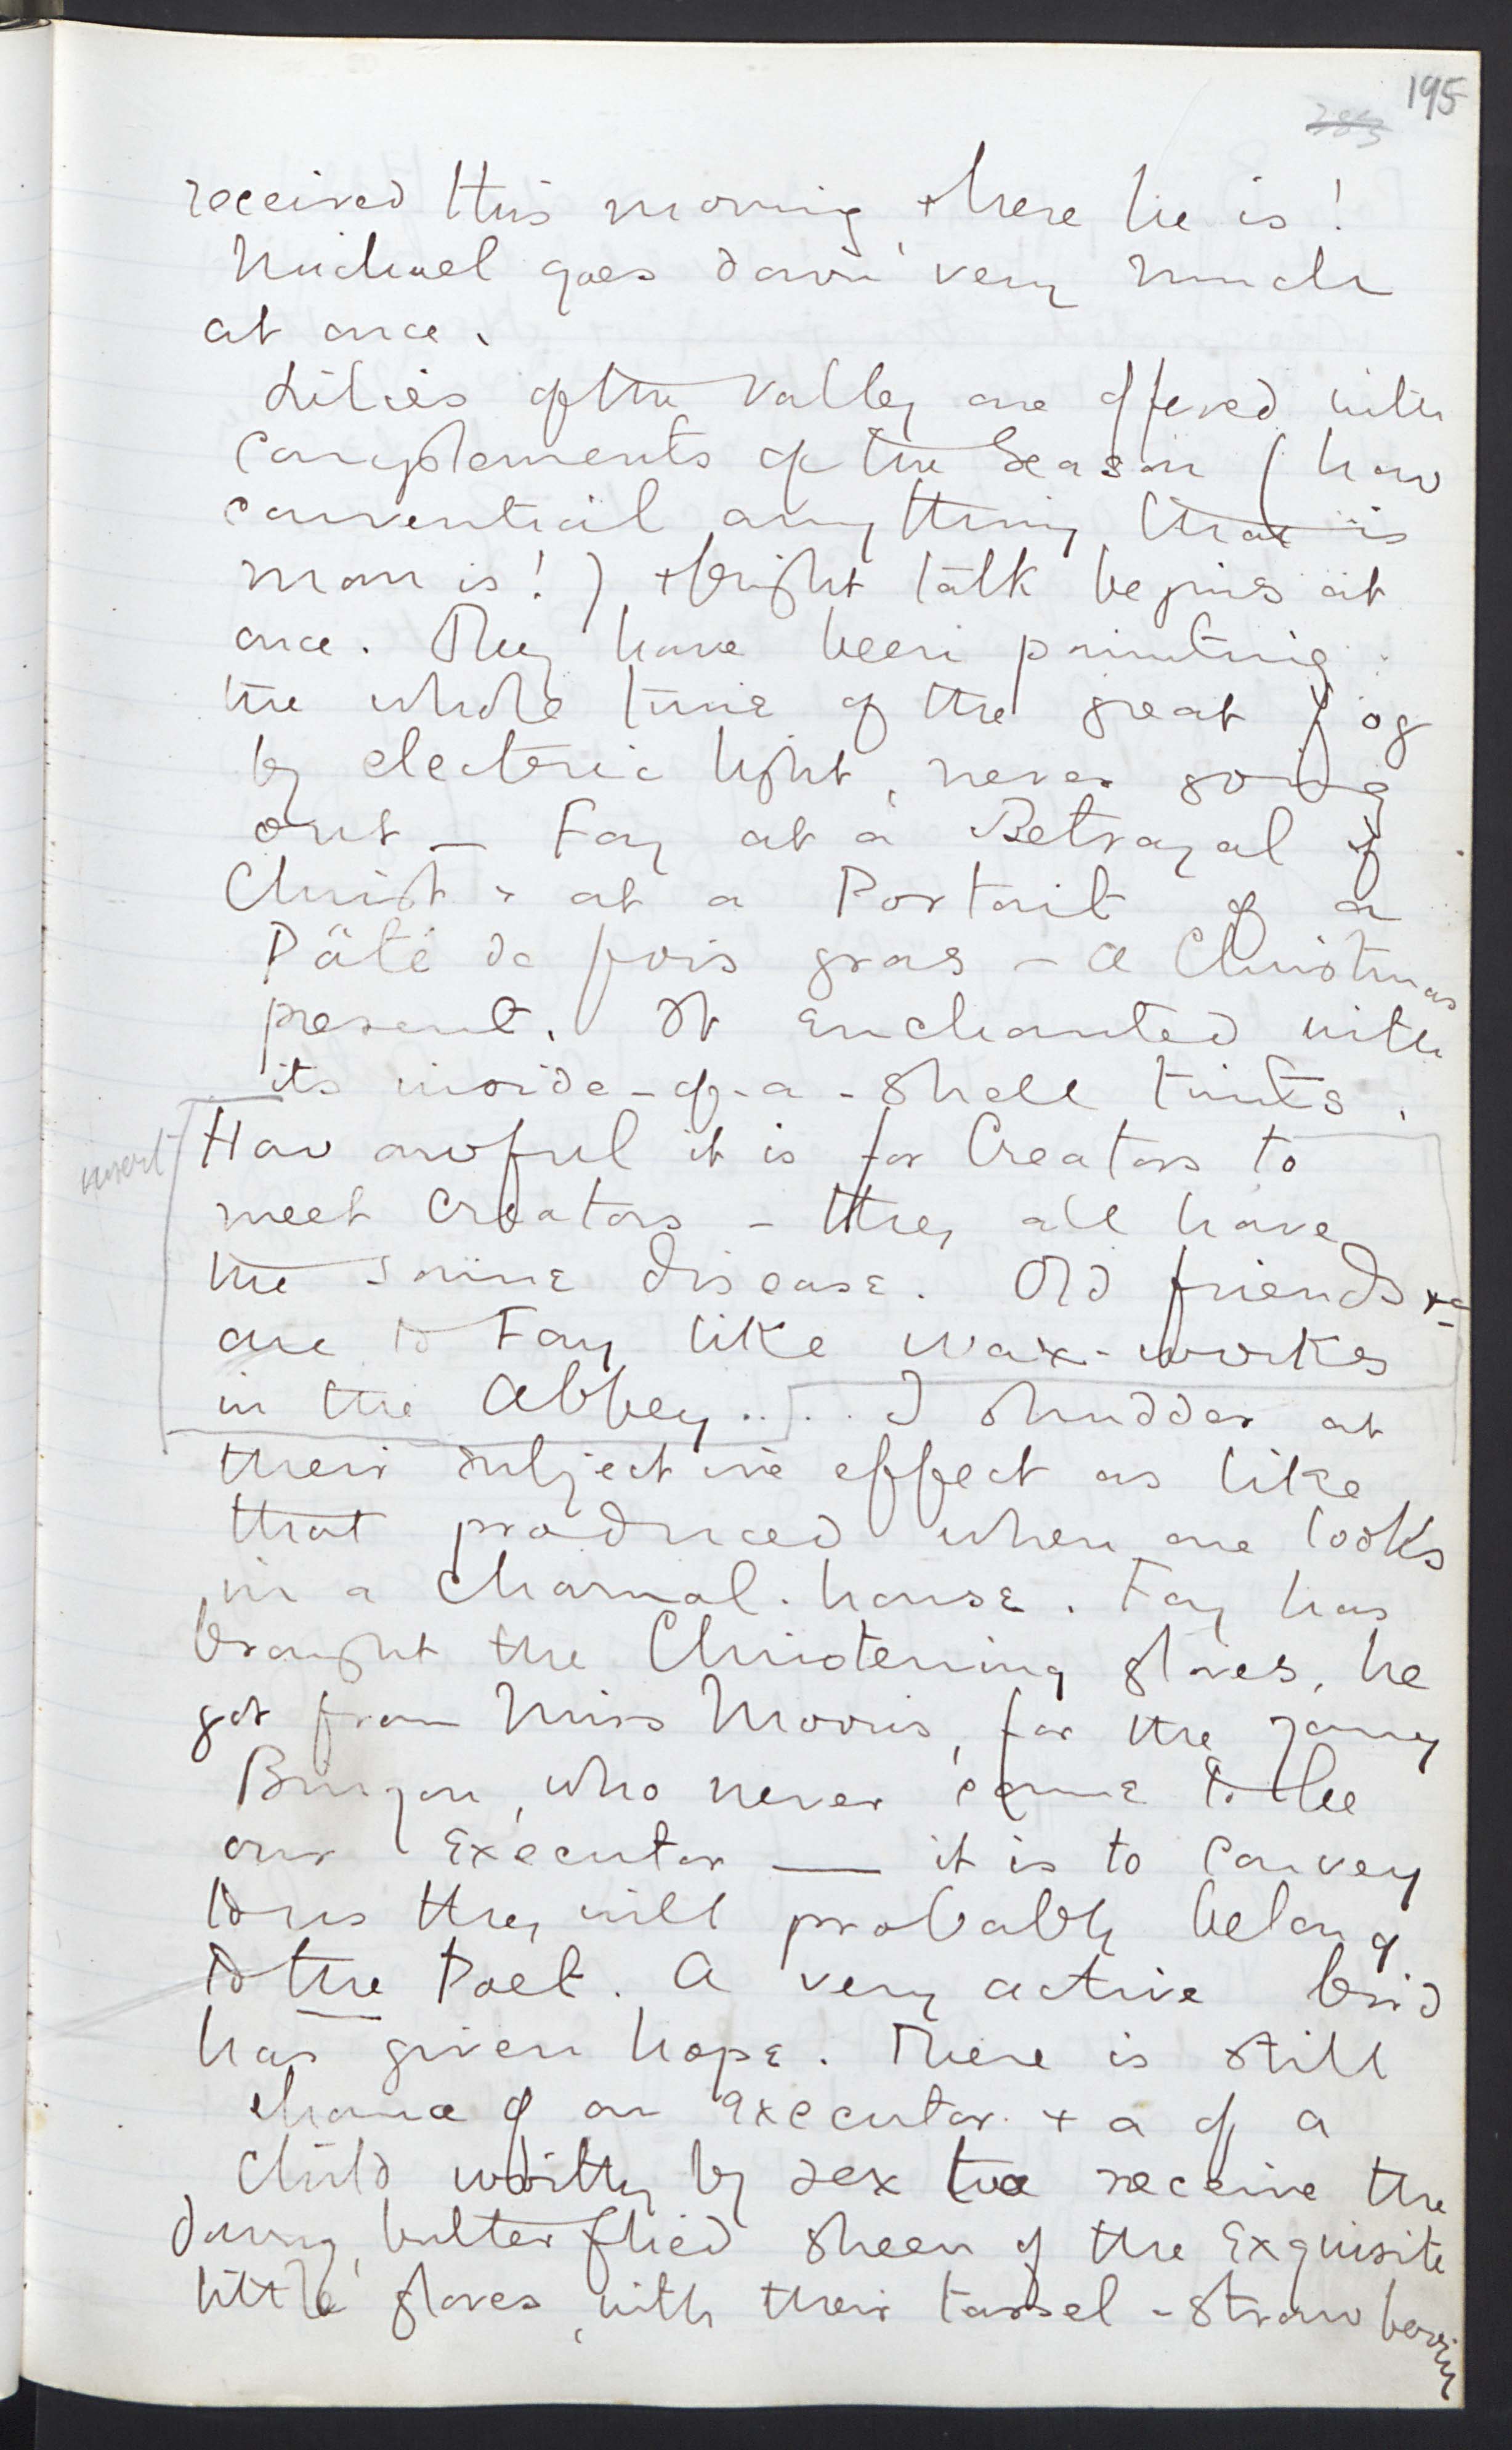 195
283
received this morning, + here he is!
Michael goes down very much
at once.
Lilies of the Valley are offered with
complements of the Season (how
convential anything that is
man is!), + bright talk begins at
once. They have been painting
the whole time of the great fog
by electric light, never going
out — Fay at a Betrayal of
Christ & at a Portait of a
Pâté de fois gras – a Christmas
present. It enchanted with
its inside-of-a-shell tints.
insert
How awful it is for Creators to
meet Creators – they all have
the same disease. Old friends
are to Fay like wax-workes
in the Abbey.... I shudder at
their subjective effect as like
that produced when one looks
in a charnal-house. Fay has
brought the Christening gloves, he
got from Miss Morris, for the young
who never came to be
our Executor — it is to convey
to us they will probably belong
to the Poet. A very active bird
has given hope. There is still
chance of an executor + a of a
Child by sex to receive the
downy, butterflied sheen of the Exquisite
little gloves, with their tassel-strawberries